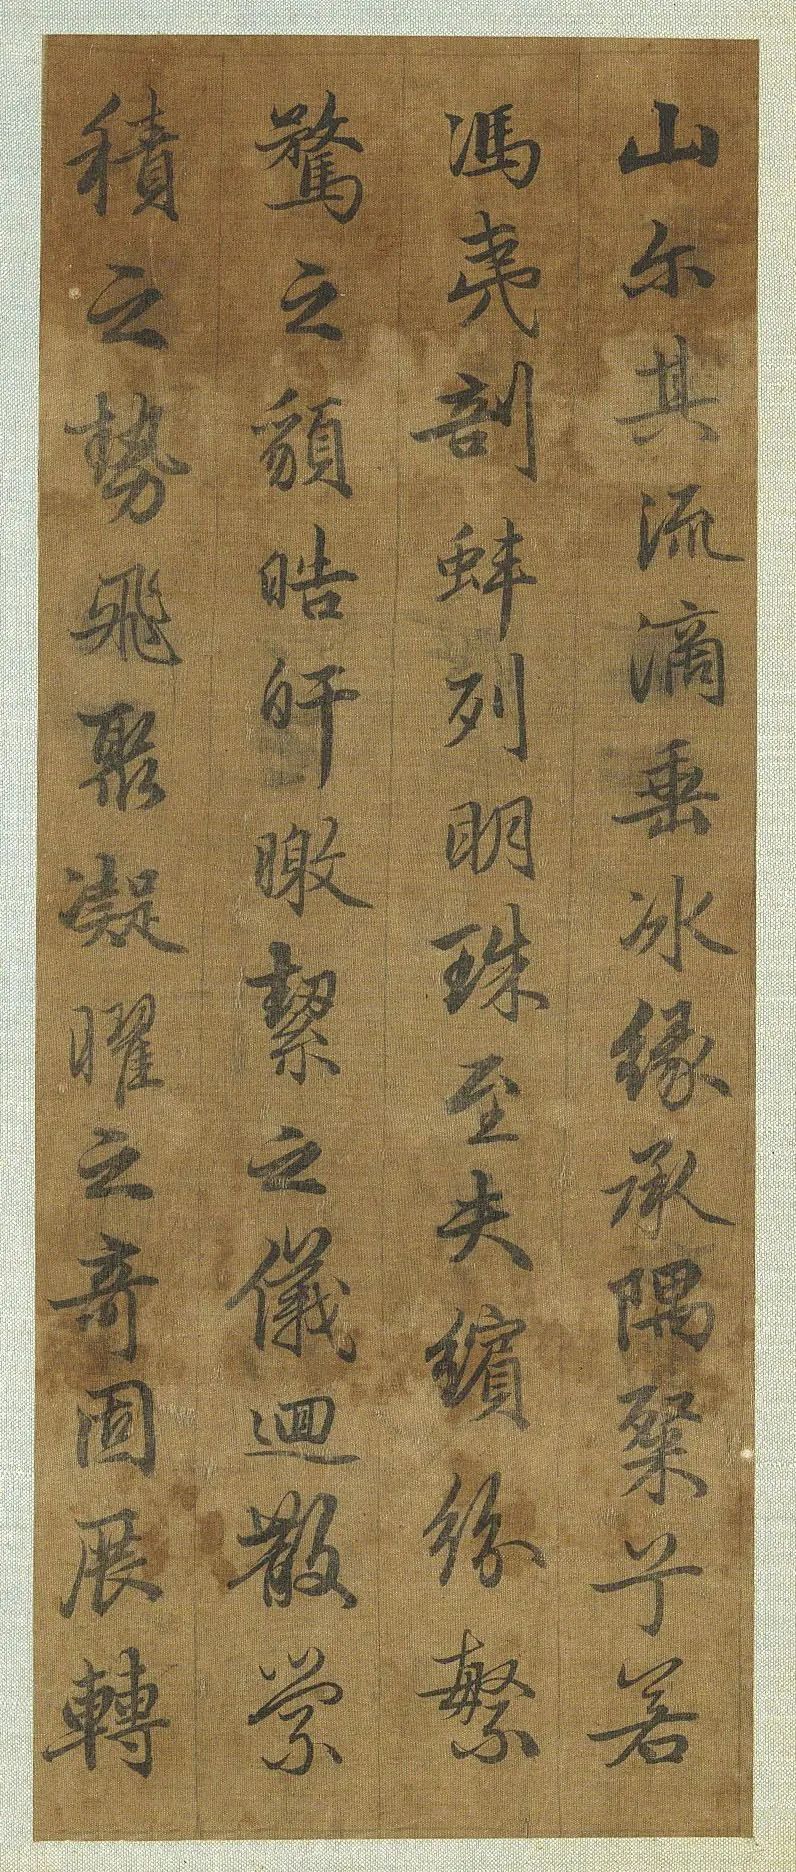 山尔其流滴垂冰緣承隅粲兮若
馮夷剖蚌列明珠至夫繽紛繁
騖之䫉晧皯曒絜之儀迴散縈
積之勢飛聚凝曜之奇固展轉